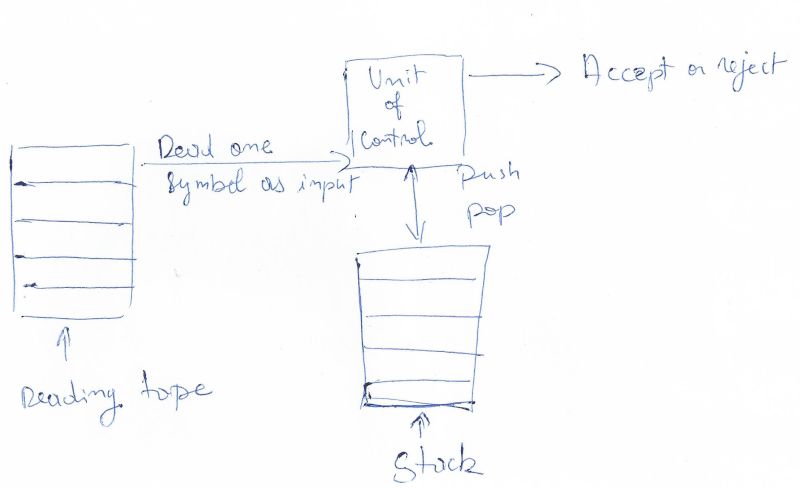 Unit
of
Control
Accept or reject
Read one
Symbol as input
Push
pop
Reading tape
Stack